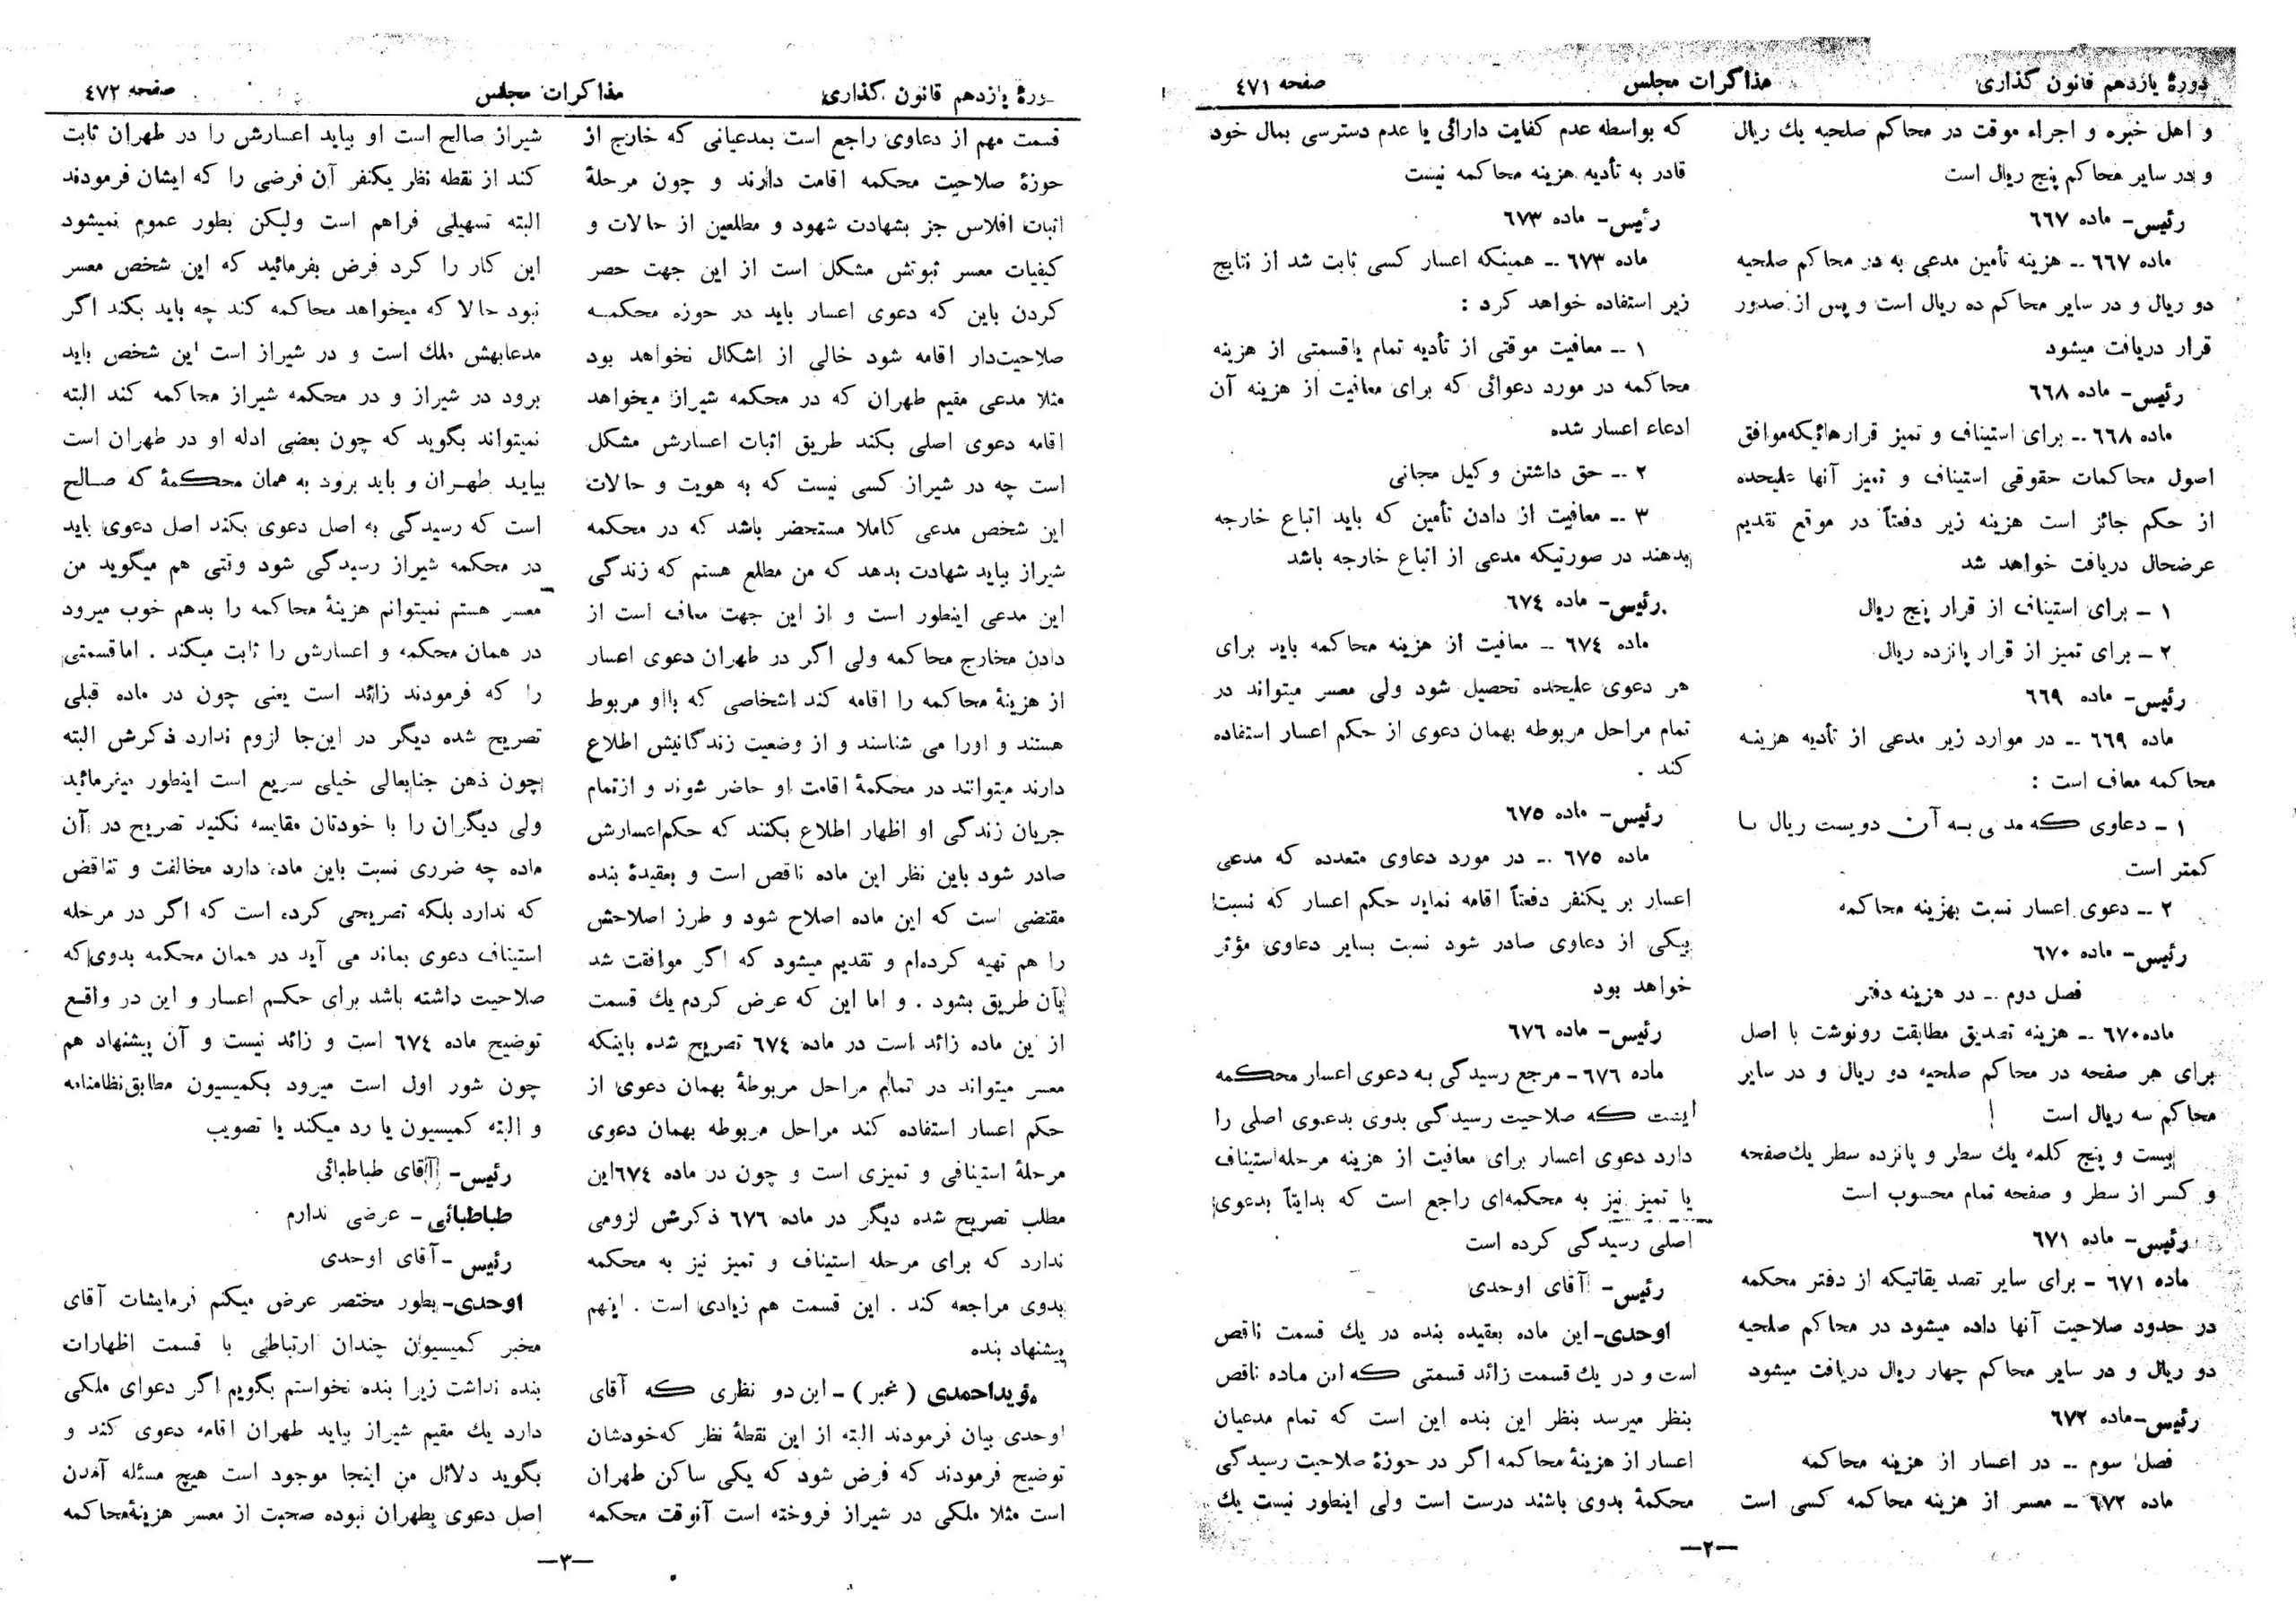 دورهٔ یازدهم قانون گذاری
مذاکرات مجلس
صفحه ٤٧١
و اهل خبره و اجراء موقت در محاکم صلحیه یك ریال
و در سایر محاکم پنج ریال است
رئیس – ماده ٦٦٧
ماده ٦٦٧ – هزینه تأمین مدعی به در محاکم صلحیه
دو ریال و در سایر محاکم ده ریال است و پس از صدور
قرار دریافت میشود
رئیس – ماده ٦٦٨
ماده ٦٦٨ – برای استیناف و تمیز قرارهائیکه موافق
اصول محاکمات حقوقی استیناف و تمیز آنها علیحده
از حکم جائز است هزینه زیر دفعتاً در موقع تقدیم
عرضحال دریافت خواهد شد
١ – برای استیناف از قرار پنج ریال
٢ – برای تمیز از قرار پانزده ریال
رئیس – ماده ٦٦٩
ماده ٦٦٩ – در موارد زیر مدعی از تأدیه هزینه
محاکمه معاف است :
١ – دعاوی که مدعی به آن دویست ریال یا
کمتر است
٢ – دعوی اعسار نسبت بهزینه محاکمه
رئیس – ماده ٦٧٠
فصل دوم – در هزینه دفتر
ماده ٦٧٠ – هزینه تصدیق مطابقت رونوشت با اصل
برای هر صفحه در محاکم صلحیه دو ریال و در سایر
محاکم سه ریال است
بیست و پنج کلمه یك سطر و پانزده سطر یك صفحه
و کسر از سطر و صفحه تمام محسوب است
رئیس – ماده ٦٧١
ماده ٦٧١ – برای سایر تصدیقاتیکه از دفتر محکمه
در حدود صلاحیت آنها داده میشود در محاکم صلحیه
دو ریال و در سایر محاکم چهار ریال دریافت میشود
رئیس – ماده ٦٧٢
فصل سوم – در اعسار از هزینه محاکمه
ماده ٦٧٢ – معسر از هزینه محاکمه کسی است
که بواسطه عدم کفایت دارائی یا عدم دسترسی بمال خود
قادر به تأدیه هزینه محاکمه نیست
رئیس – ماده ٦٧٣
ماده ٦٧٣ – همینکه اعسار کسی ثابت شد از نتایج
زیر استفاده خواهد کرد :
١ – معافیت موقتی از تأدیه تمام یا قسمتی از هزینه
محاکمه در مورد دعوائی که برای معافیت از هزینه آن
ادعاء اعسار شده
٢ – حق داشتن وکیل مجانی
٣ – معافیت از دادن تأمین که باید اتباع خارجه
بدهند در صورتیکه مدعی از اتباع خارجه باشد
رئیس – ماده ٦٧٤
ماده ٦٧٤ – معافیت از هزینه محاکمه باید برای
هر دعوی علیحده تحصیل شود ولی معسر میتواند در
تمام مراحل مربوطه بهمان دعوی از حکم اعسار استفاده
کند .
رئیس – ماده ٦٧٥
ماده ٦٧٥ – در مورد دعاوی متعدده که مدعی
اعسار بر یکنفر دفعتاً اقامه نماید حکم اعسار که نسبت
بیکی از دعاوی صادر شود نسبت بسایر دعاوی مؤثر
خواهد بود
رئیس – ماده ٦٧٦
ماده ٦٧٦ – مرجع رسیدگی به دعوی اعسار محکمه
ایست که صلاحیت رسیدگی بدوی بدعوی اصلی را
دارد دعوی اعسار برای معافیت از هزینه مرحله استیناف
یا تمیز نیز به محکمه‌ای راجع است که بدایتاً بدعوی
اصلی رسیدگی کرده است
رئیس – آقای اوحدی
اوحدی – این ماده بعقیده بنده در یك قسمت ناقص
است و در یك قسمت زائد قسمتی که این ماده ناقص
بنظر میرسد بنظر این بنده این است که تمام مدعیان
اعسار از هزینهٔ محاکمه اگر در حوزهٔ صلاحیت رسیدگی
محکمهٔ بدوی باشند درست است ولی اینطور نیست یك
–٢–
دورهٔ یازدهم قانون گذاری
مذاکرات مجلس
صفحه ٤٧٢
قسمت مهم از دعاوی راجع است بمدعیانی که خارج از
حوزهٔ صلاحیت محکمه اقامت دارند و چون مرحلهٔ
اثبات افلاس جز بشهادت شهود و مطلعین از حالات و
کیفیات معسر ثبوتش مشکل است از این جهت حصر
کردن باین که دعوی اعسار باید در حوزه محکمه
صلاحیت‌دار اقامه شود خالی از اشکال نخواهد بود
مثلا مدعی مقیم طهران که در محکمه شیراز میخواهد
اقامه دعوی اصلی بکند طریق اثبات اعسارش مشکل
است چه در شیراز کسی نیست که به هویت و حالات
این شخص مدعی کاملا مستحضر باشد که در محکمه
شیراز بیاید شهادت بدهد که من مطلع هستم که زندگی
این مدعی اینطور است و از این جهت معاف است از
دادن مخارج محاکمه ولی اگر در طهران دعوی اعسار
از هزینهٔ محاکمه را اقامه کند اشخاصی که بااو مربوط
هستند و اورا می شناسند و از وضعیت زندگانیش اطلاع
دارند میتوانند در محکمهٔ اقامت او حاضر شوند و از تمام
جریان زندگی او اظهار اطلاع بکنند که حکم اعسارش
صادر شود باین نظر این ماده ناقص است و بعقیدهٔ بنده
مقتضی است که این ماده اصلاح شود و طرز اصلاحش
را هم تهیه کرده‌ام و تقدیم میشود که اگر موافقت شد
بآن طریق بشود . و اما این که عرض کردم یك قسمت
از ین ماده زائد است در ماده ٦٧٤ تصریح شده باینکه
معسر میتواند در تمام مراحل مربوطهٔ بهمان دعوی از
حکم اعسار استفاده کند مراحل مربوطه بهمان دعوی
مرحلهٔ استینافی و تمیزی است و چون در ماده ٦٧٤ این
مطلب تصریح شده دیگر در ماده ٦٧٦ ذکرش لزومی
ندارد که برای مرحله استیناف و تمیز نیز به محکمه
بدوی مراجعه کند . این قسمت هم زیادی است . اینهم
پیشنهاد بنده
مؤیداحمدی ( مخبر ) – این دو نظری که آقای
اوحدی بیان فرمودند البته از این نقطهٔ نظر که خودشان
توضیح فرمودند که فرض شود که یکی ساکن طهران
است مثلا ملکی در شیراز فروخته است آنوقت محکمه
شیراز صالح است او بیاید اعسارش را در طهران ثابت
کند از نقطه نظر یکنفر آن فرضی را که ایشان فرمودند
البته تسهیلی فراهم است ولیکن بطور عموم نمیشود
این کار را کرد فرض بفرمائید که این شخص معسر
نبود حالا که میخواهد محاکمه کند چه باید بکند اگر
مدعابهش ملك است و در شیراز است این شخص باید
برود در شیراز و در محکمه شیراز محاکمه کند البته
نمیتواند بگوید که چون بعضی ادله او در طهران است
بیاید طهران و باید برود به همان محکمهٔ که صالح
است که رسیدگی به اصل دعوی بکند اصل دعوی باید
در محکمه شیراز رسیدگی شود وقتی هم میگوید من
معسر هستم نمیتوانم هزینهٔ محاکمه را بدهم خوب میرود
در همان محکمه و اعسارش را ثابت میکند . اما قسمتی
را که فرمودند زائد است یعنی چون در ماده قبلی
تصریح شده دیگر در این‌جا لزوم ندارد ذکرش البته
چون ذهن جنابعالی خیلی سریع است اینطور میفرمائید
ولی دیگران را با خودتان مقایسه نکنید تصریح در آن
ماده چه ضرری نسبت باین ماده دارد مخالفت و تناقض
که ندارد بلکه تصریحی کرده است که اگر در مرحله
استیناف دعوی بماند می آید در همان محکمه بدوی که
صلاحیت داشته باشد برای حکم اعسار و این در واقع
توضیح ماده ٦٧٤ است و زائد نیست و آن پیشنهاد هم
چون شور اول است میرود بکمیسیون مطابق نظامنامه
و البته کمیسیون یا رد میکند یا تصویب
رئیس – آقای طباطبائی
طباطبائی – عرضی ندارم
رئیس – آقای اوحدی
اوحدی – بطور مختصر عرض میکنم فرمایشات آقای
مخبر کمیسیون چندان ارتباطی با قسمت اظهارات
بنده نداشت زیرا بنده نخواستم بگویم اگر دعوای ملکی
دارد یك مقیم شیراز بیاید طهران اقامه دعوی کند و
بگوید دلائل من اینجا موجود است هیچ مسئله آمدن
اصل دعوی بطهران نبوده صحبت از معسر هزینهٔ محاکمه
–٣–